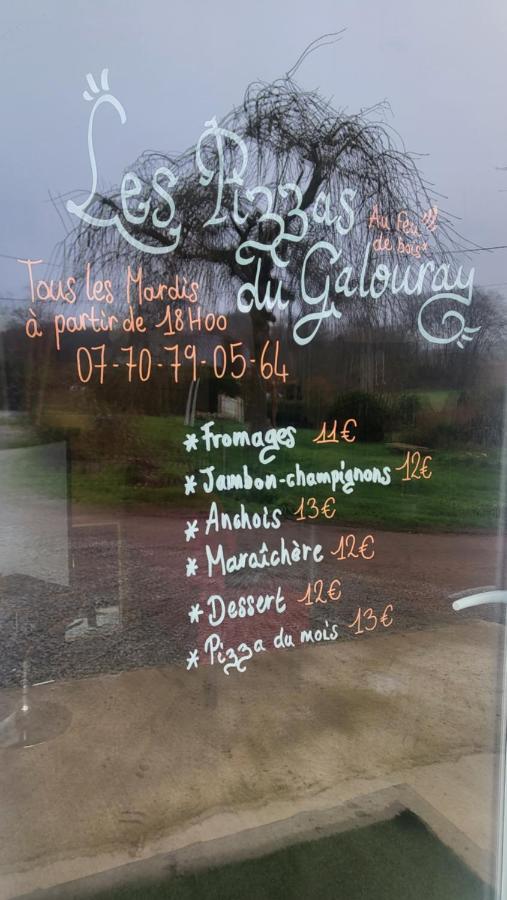 Les Pizzas
Au feu
de bois
du Galouray
Tous les Mardis
à partir de 18H00
07-70-79-05-64
* Fromages 11€
* Jambon-champignons 12€
* Anchois 13€
* Maraîchère 12€
* Dessert 12€
* Pizza du mois 13€